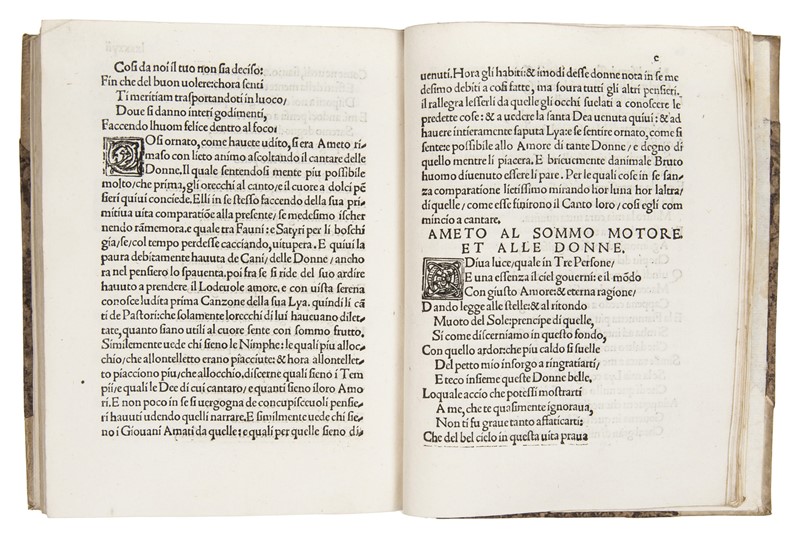 Cosi da noi il tuo non sia deciso:
Fin che del buon uolere: chora senti
Ti meritiam trasportandoti in luoco/
Doue si danno interi godimenti,
Faccendo lhuom felice dentro al foco:
COsi ornato, come hauete udito, si era Ameto ri-
maso con lieto animo ascoltando il cantare delle
Donne. Il quale sentendosi mente piu possibile
molto/che prima, gli orecchi al canto/e il cuore a dolci pẽ
sieri quiui conciede. Elli in se stesso faccendo della sua pri-
mitiua uita comparatiõe alla presente/ se medesimo ischer
nendo rãmemora. e quale tra Fauni: e Satyri per li boschi
gia/se/col tempo perdesse cacciando, uitupera. E quiui la
paura debitamente hauuta de Cani/ delle Donne/ ancho
ra nel pensiero lo spauenta. poi fra se si ride del suo ardire
hauuto a prendere il Lodeuole amore. e con uista serena
conosce ludita prima Canzone della sua Lya. quindi li cã
ti de Pastori: che solamente lorecchi di lui haueuano dilet-
tate, quanto siano utili al cuore sente con sommo frutto.
Similemente uede chi sieno le Nimphe: le quali piu alloc-
chio/che allontelletto erano piacciute: & hora allontellet-
to piacciono piu/che allocchio, discerne quali sieno i Tem
pii/e quali le Dee di cui cantaro/ e quanti sieno iloro Amo
ri. E non poco in se si uergogna de concupisceuoli pensie-
ri hauuti udendo quelli narrare. E similmente uede chi sie-
no i Giouani Amati da quelle: e quali per quelle sieno di-
c
uenuti. Hora gli habiti: & imodi desse donne nota in se me
desimo debiti a cosi fatte, ma soura tutti gli altri pensieri.
il rallegra lesserli da quelle gli occhi suelati a conoscere le
predette cose: & a uedere la santa Dea uenuta quiui: & ad
hauere intieramente saputa Lya: e se sentire ornato, come si
sente: e possibile allo Amore di tante Donne/ e degno di
quello mentre li piacera. E brieuemente danimale Bruto
huomo diuenuto essere li pare. Per le quali cose in se san-
za comparatione lietissimo mirando hor luna hor laltra/
di quelle/ come esse finirono il Canto loro/ cosi egli com
mincio a cantare.
AMETO AL SOMMO MOTORE.
ET ALLE DONNE.
DIua luce/ quale in Tre Persone/
E una essenza il ciel gouerni: e il mõdo
Con giusto Amore: & eterna ragione/
Dando legge alle stelle: & al ritondo
Muoto del Sole: prencipe di quelle,
Si come discerniamo in questo fondo,
Con quello ardor: che piu caldo si suelle
Del petto mio insorgo a ringratiarti/
E teco insieme queste Donne belle.
Loquale accio che potessi mostrarti
A me, che te quasimente ignoraua,
Non ti fu graue tanto affaticarti:
Che del bel cielo in questa uita praua